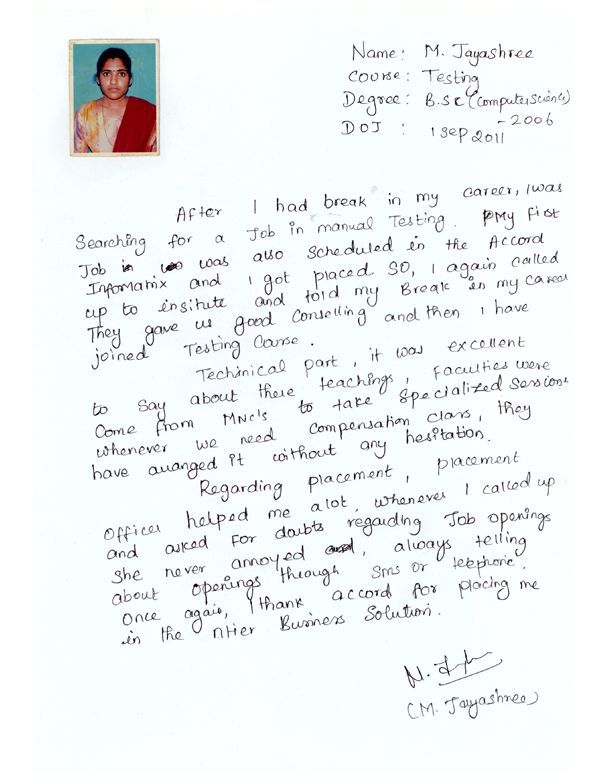 Name: M. Jayashree
Course: Testing
Degree: B.Sc (Computer Science)
- 2006
DOJ : 1 Sep 2011
After I had break in my career, I was
Searching for a Job in manual Testing. My First
Job was also Scheduled in the Accord
Infomatrix and I got placed. So, I again called
up to insitute and told my Break in my career
They gave us good Conselling and then I have
joined Testing Course.
Techinical part, it was excellent
to Say about there teachings, Faculties were
Come from MNC's to take Specialized Sessions
whenever we need compensation class, they
have arranged it without any hesitation.
Regarding placement, placement
Officer helped me alot, whenever I called up
and asked for doubts regarding Job openings
She never annoyed, always telling
about openings through Sms or telephonic.
Once again, I thank accord for placing me
in the ntier Business Solution.
(M. Jayashree)